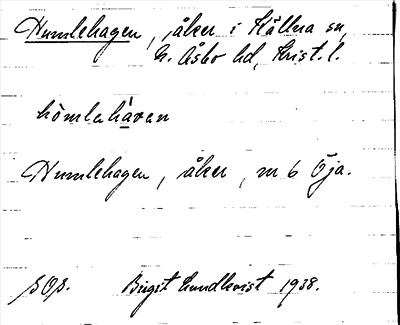 Humlehagen, åker i Källna sn,
N. Åsbo hd, Krist. l.
hömlahàvan
Humlehagen, åker, m 6 Öja.
Birgit Lundkvist 1938.